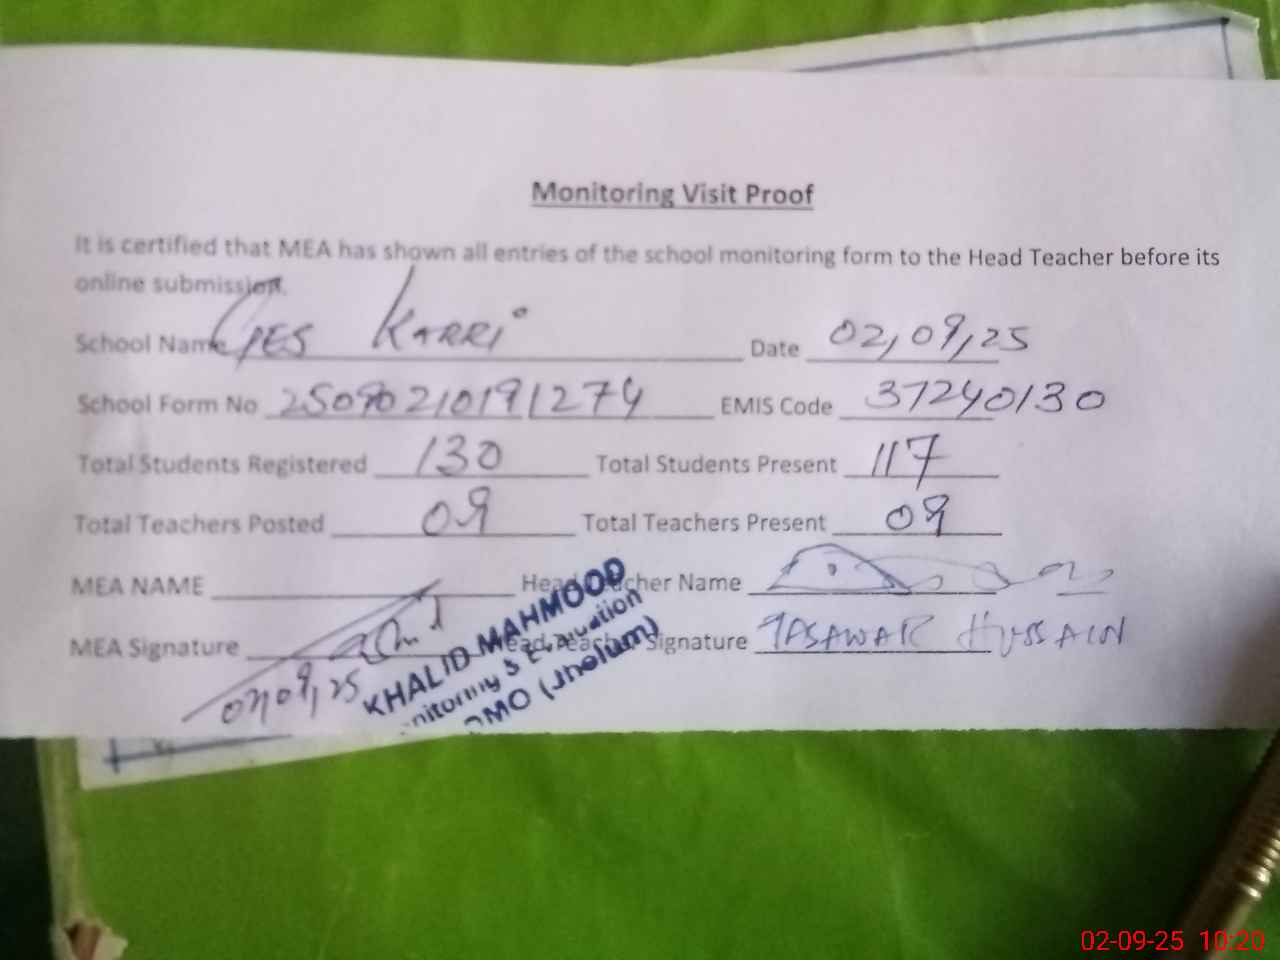 Monitoring Visit Proof
It is certified that MEA has shown all entries of the school monitoring form to the Head Teacher before its
online submission.
School Name GES KARRI Date 02,09,25
School Form No 25090210191274 EMIS Code 37240130
Total Students Registered 130 Total Students Present 117
Total Teachers Posted 09 Total Teachers Present 09
MEA NAME Head Teacher Name
MEA Signature Head Teacher Signature TASAWAR HUSSAIN
02,09,25
KHALID MAHMOOD
Monitoring & Evaluation
DMO (Jhelum)
02-09-25 10:20